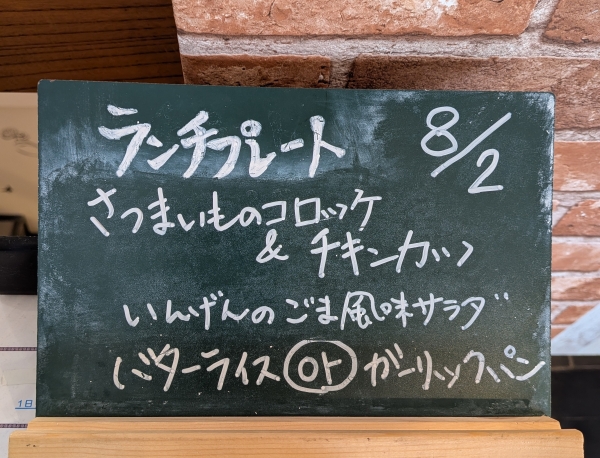 ランチプレート 8/2
さつまいものコロッケ
& チキンカツ
いんげんのごま風味サラダ
バターライス or ガーリックパン
1日